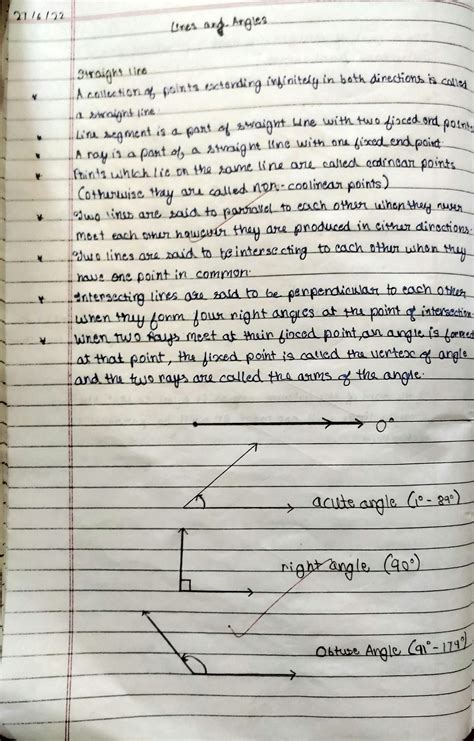 27/6/22
Lines and Angles
Straight line
A collection of points extending infinitely in both directions is called
a straight line.
Line segment is a part of straight line with two fixed end points
A ray is a part of a straight line with one fixed end point
Points which lie on the same line are called colinear points
(otherwise they are called non-coolinear points)
Two lines are said to parravel to each other when they never
meet each other however they are produced in either directions.
Two lines are said to be intersecting to each other when they
have one point in common.
Intersecting lines are said to be perpendicular to each other
when they form four right angles at the point of intersection
when two rays meet at their fixed point, an angle is formed
at that point, the fixed point is called the vertex of angle
and the two rays are called the arms of the angle.
0°
acute angle (1°-89°)
right angle (90°)
Obtuse Angle (91°-179°)